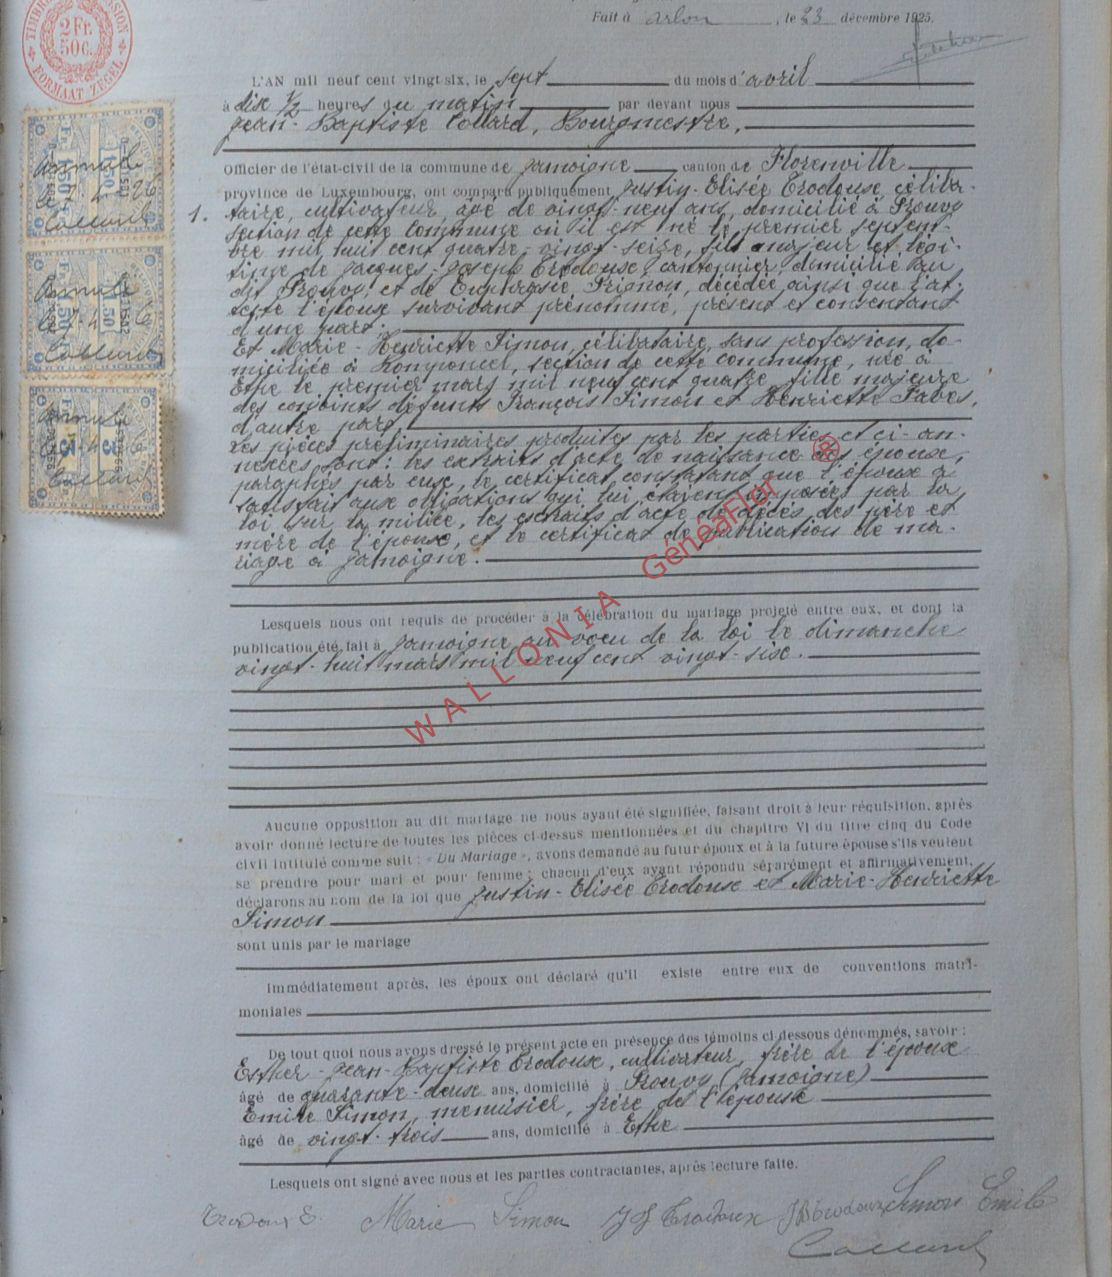 Fait à Arlon, le 23 décembre 1925.
2 Fr. 50 C.
FORMAAT ZEGEL
L'AN mil neuf cent vingt-six, le sept du mois d'avril
à dix 1/2 heures du matin par devant nous
Jean-Baptiste Collard, Bourgmestre,
Officier de l'état-civil de la commune de Jamoigne canton de Florenville
province de Luxembourg, ont comparu publiquement Justin-Elisée Erodoux, céliba-
1. taire, cultivateur, âgé de vingt-neuf ans, domicilié à Prouvy
section de cette commune où il est né le premier septem-
bre mil huit cent quatre-vingt-seize, fils majeur et légi-
time de Jacques-Joseph Erodoux, cantonnier, domicilié au
dit Prouvy, et de Euphrasie Prignon, décédée ainsi que l'at-
teste l'époux survivant prénommé, présent et consentant
d'une part;
Et Marie-Henriette Simon, célibataire, sans profession, do-
miciliée à Romponcel, section de cette commune, née à
Ethe le premier mars mil neuf cent quatre, fille majeure
des conjoints défunts François Simon et Henriette Fabes,
d'autre part,
Les pièces préliminaires produites par les parties et ci-an-
nexées sont: les extraits d'acte de naissance des époux,
paraphés par eux, le certificat constatant que l'époux a
satisfait aux obligations qui lui étaient imposées par la
loi sur la milice, les extraits d'acte de décès des père et
mère de l'épouse, et le certificat de publication de ma-
riage à Jamoigne.
Lesquels nous ont requis de procéder à la célébration du mariage projeté entre eux, et dont la
publication été fait à Jamoigne au vœu de la loi le dimanche
vingt-huit mars mil neuf cent vingt-six.
WALLONIA GénéaFlor ®
Aucune opposition au dit mariage ne nous ayant été signifiée, faisant droit à leur réquisition, après
avoir donné lecture de toutes les pièces ci-dessus mentionnées et du chapitre VI du titre cinq du Code
civil intitulé comme suit : « Du Mariage », avons demandé au futur époux et à la future épouse s'ils veulent
se prendre pour mari et pour femme ; chacun d'eux ayant répondu séparément et affirmativement,
déclarons au nom de la loi que Justin-Elisée Erodoux et Marie-Henriette
Simon
sont unis par le mariage
Immédiatement après, les époux ont déclaré qu'il existe entre eux de conventions matri-
moniales
De tout quoi nous avons dressé le présent acte en présence des témoins ci-dessous dénommés, savoir :
Esther-Jean-Baptiste Erodoux, cultivateur, frère de l'époux
âgé de quarante-deux ans, domicilié à Prouvy (Jamoigne)
Emile Simon, menuisier, frère de l'épouse
âgé de vingt-trois ans, domicilié à Ethe
Lesquels ont signé avec nous et les parties contractantes, après lecture faite.
Erodoux E. Marie Simon J J Erodoux J B Erodoux Simon Emile
Collard